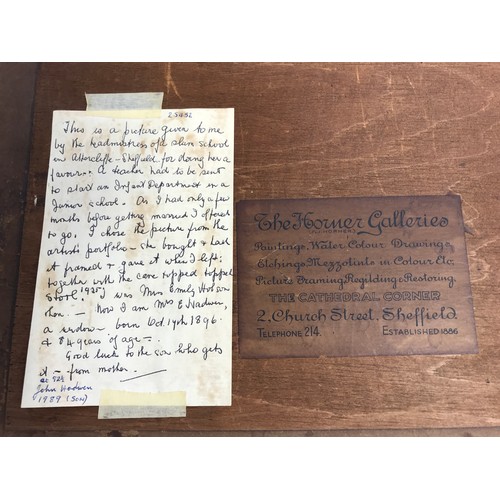 25452
This is a picture given to me
by the headmistress of a slum school
in Attercliffe - Sheffield for doing her a
favour. A teacher had to be sent
to start an Infant Department in a
Junior School. As I had only a few
months before getting married I offered
to go. I chose the picture from the
artist's portfolio - she bought & had
it framed & gave it when I left:
together with the cane topped topped
Stool. 1925 I was Miss Emily Hobson
then. - Now I am Mrs E Hadwen,
a widow - born Oct. 14th 1896.
& 84 years of age -.
Good luck to the son who gets
it - from mother.
John Hadwen
1989 (Son)
The Horner Galleries
Paintings, Water Colour Drawings
Etchings Mezzotints in Colour Etc.
Picture Framing, Regilding & Restoring.
THE CATHEDRAL CORNER
2, Church Street, Sheffield
TELEPHONE 214. ESTABLISHED 1886